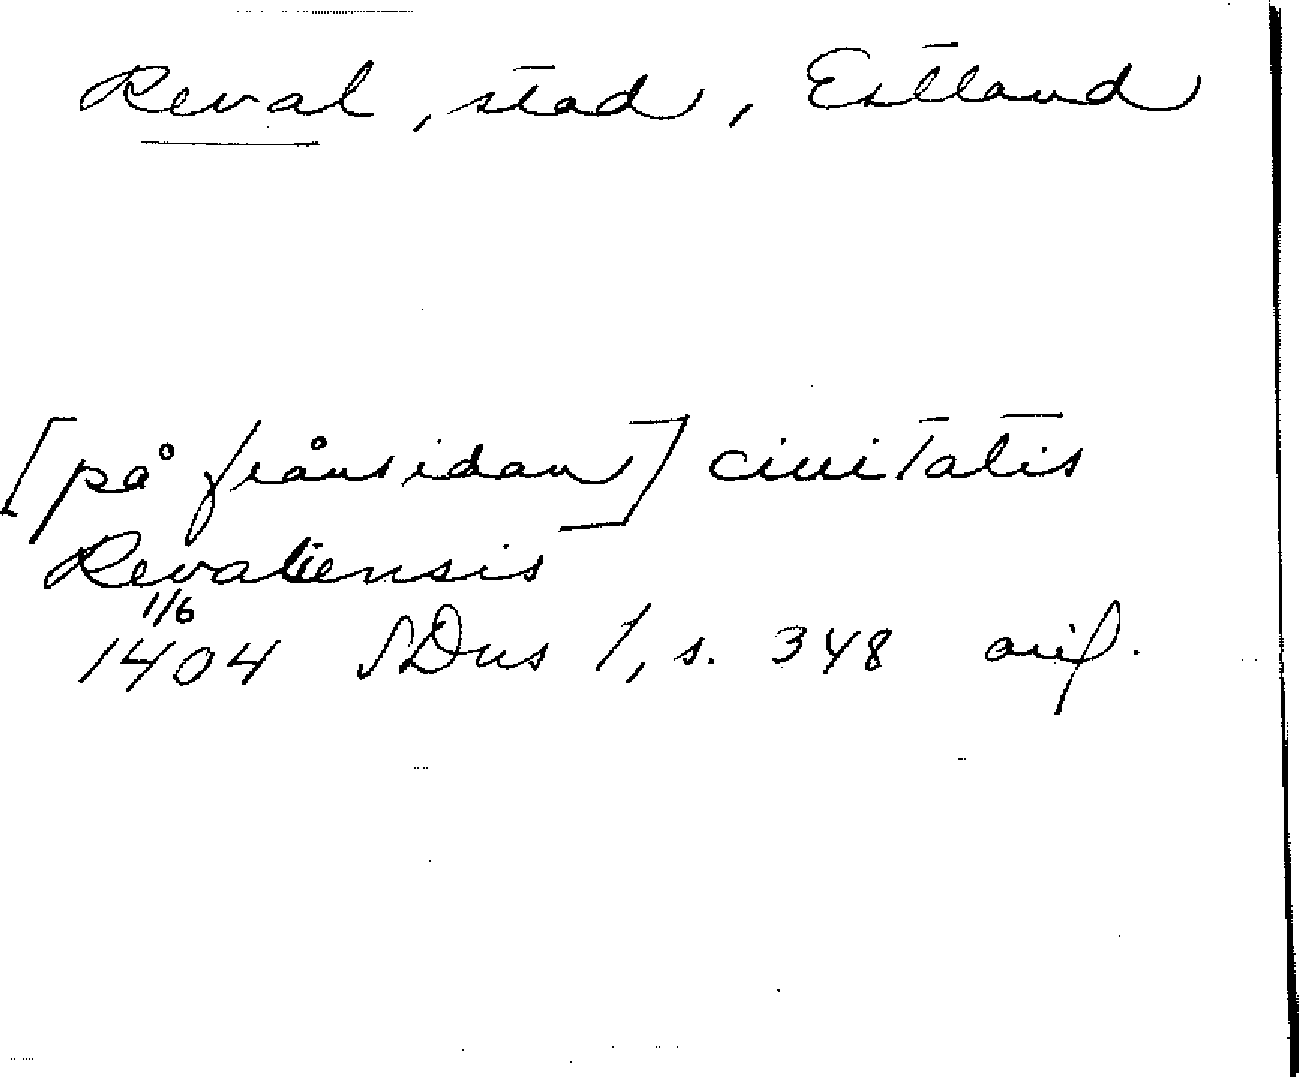 Reval, stad, Estland
[på frånsidan] ciuitatis
Revaliensis
1/6
1404 SDns 1, s. 348 avf.